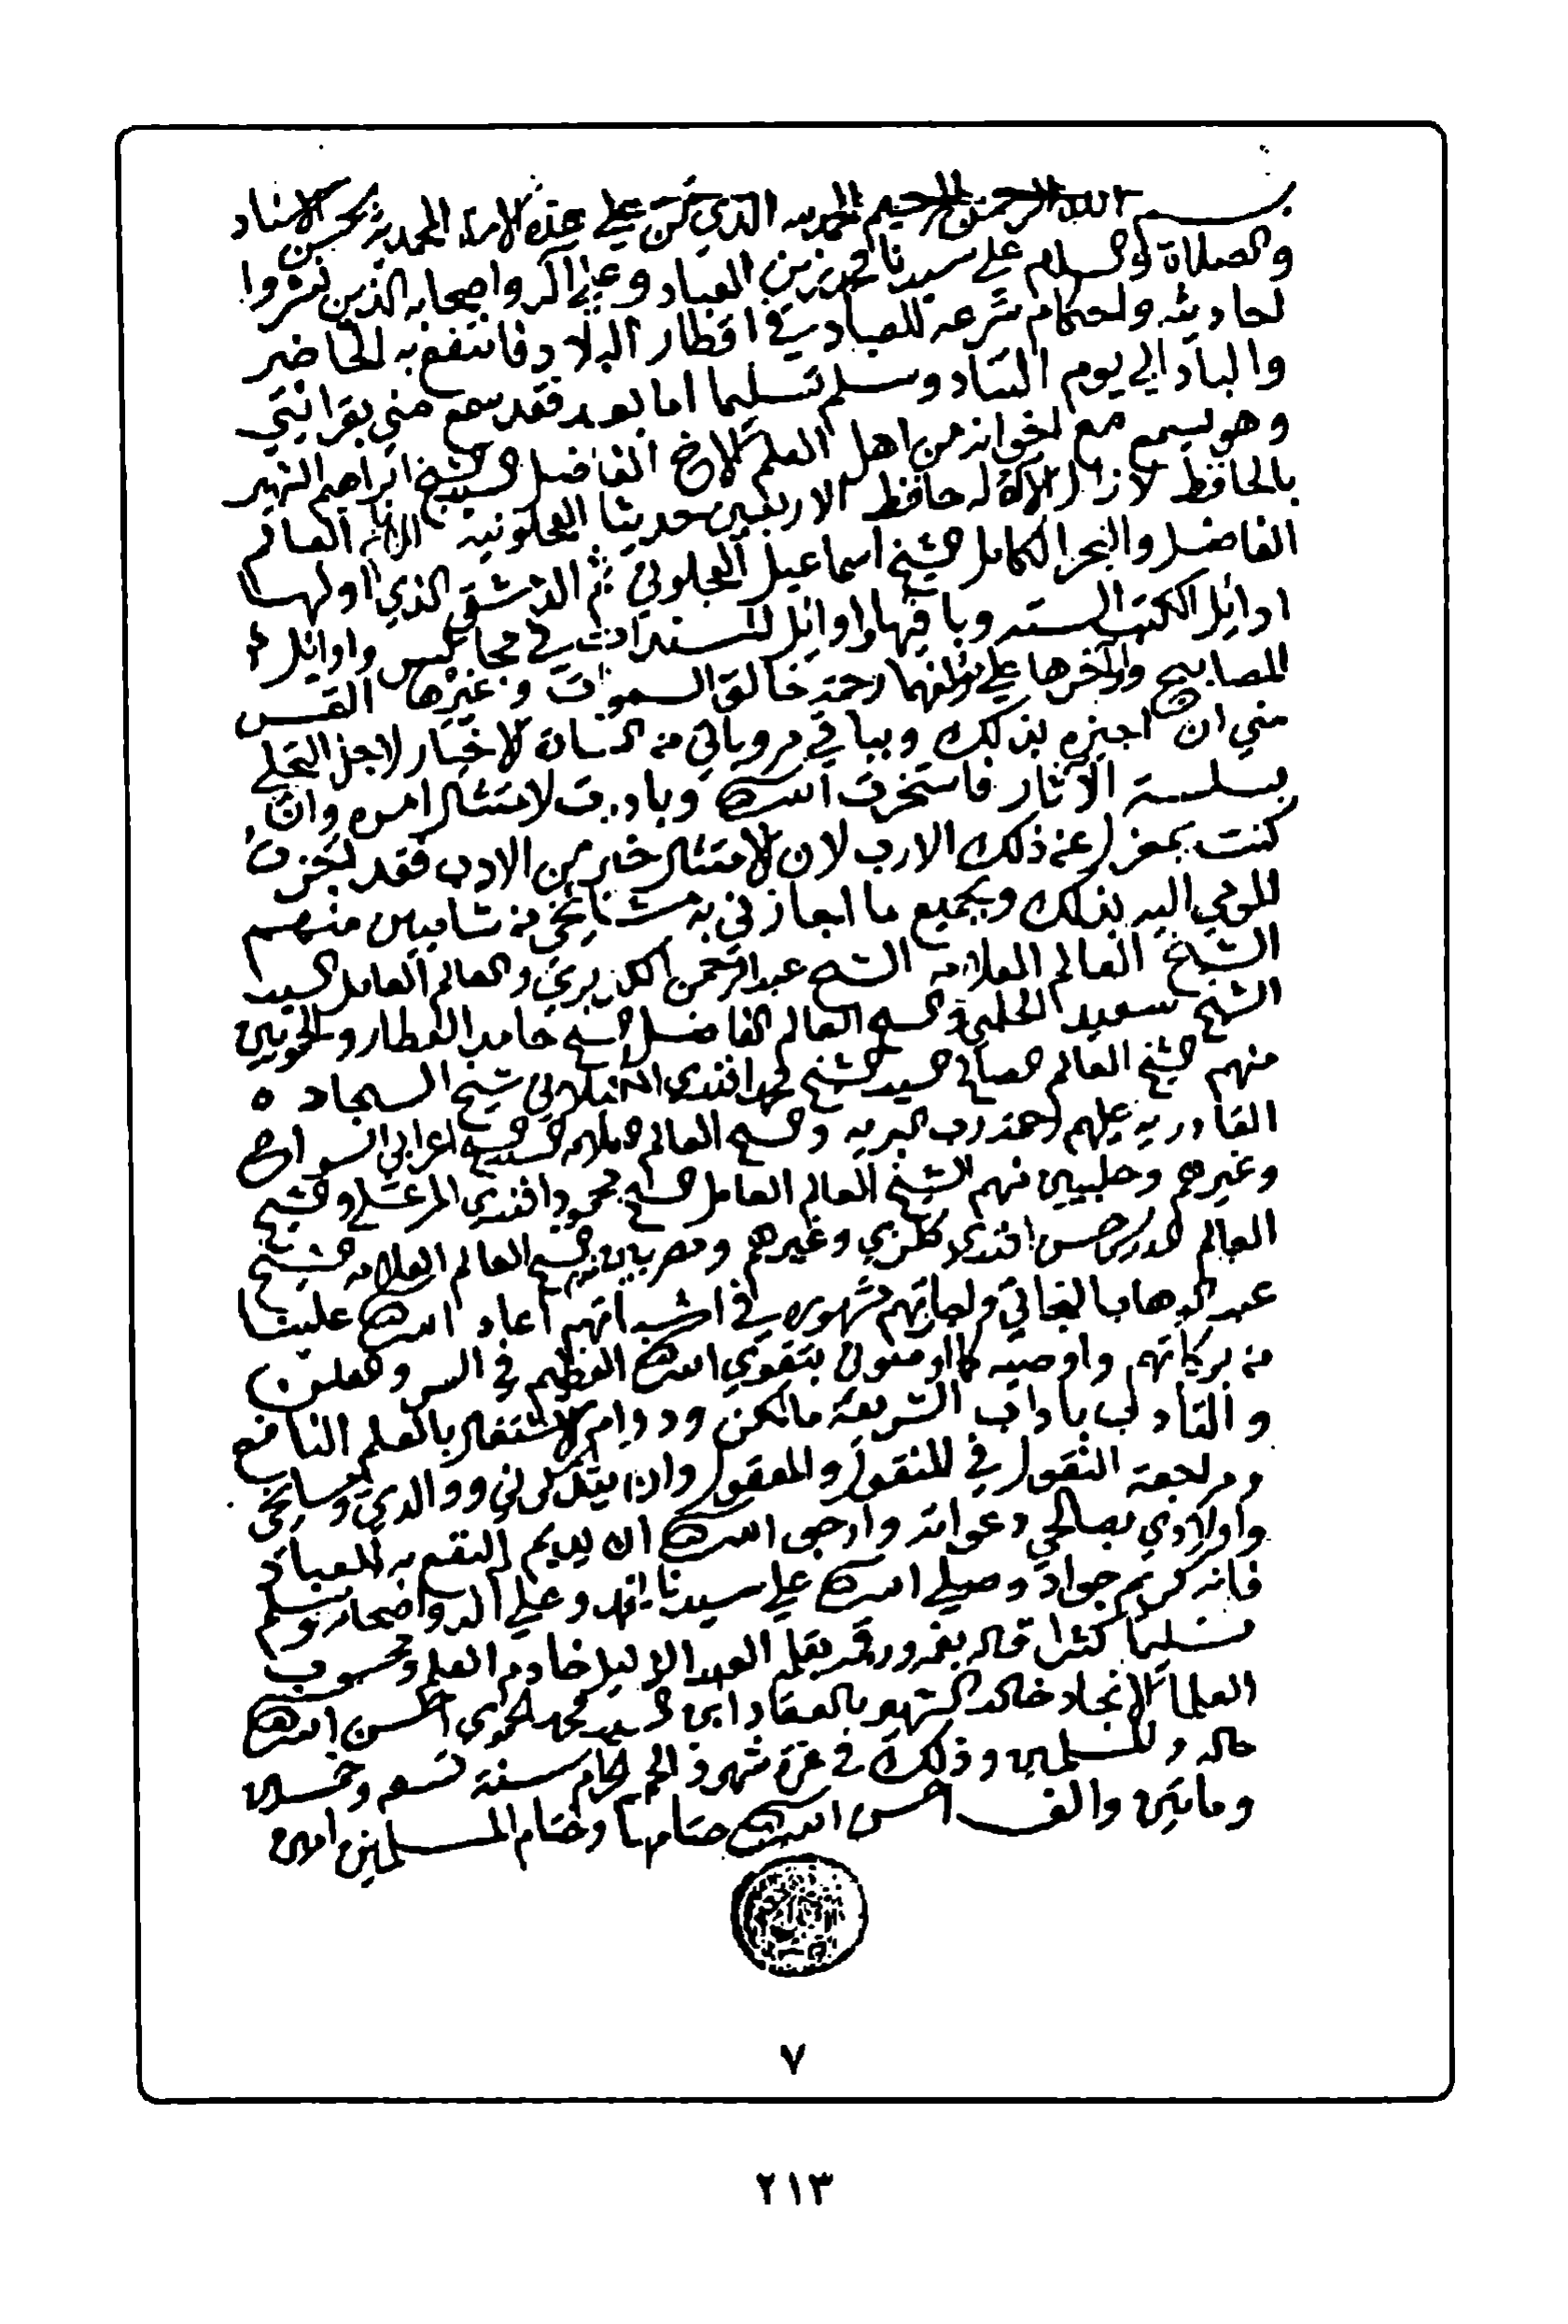 بسم الله الرحمن الرحيم الحمد لله الذي من علي هذه الامة المحمديه بحسن الاسناد
والصلاة والسلام علي سيدنا محمد زين العباد وعلي اله واصحابه الذين نشروا
احاديثه واحكام شرعه للعباد في اقطار البلاد فانتفع به الحاضر
والباد الي يوم التناد وسلم تسليما اما بعد فقد سمع مني بقرائتي
وهو يسمع مع اخوانه من اهل العلم الاخ الفاضل السيد الشيخ ابراهيم الشهير
بالحافظ لازال الاله له حافظ الاربعين حديثا العجلونيه الامام العالم
الفاضل والبحر الكامل الشيخ اسماعيل العجلوني ثم الدمشقي الذي اولها
اوائل الكتب السته وباقيها اوائل المسندات في مجالس واوايل
المصابيح واخرها علي مؤلفها رحمة خالق السموات وغيرها القس
مني ان اجيزه بذلك وبباقي مروياتي من الاخبار لاجل التحلي
بسلسة الآثار فاستخرت الله وبادرت لامتثال امره وان
كنت بمعزل عن ذلك الارب لان الامتثال خير من الادب فقد اجزت
للمومي اليه بذلك وبجميع ما اجازني به مشايخي من شاميين منهم
الشيخ العالم العلامه الشيخ عبد الرحمن الكزبري والعالم العامل السيد
الشيخ سعيد الحلبي والشيخ العالم الفاضل الشيخ حامد العطار والحمويين
منهم الشيخ العالم السيد الشيخ محمد افندي الكيلاني شيخ السجاد ه
القادريه عليهم رحمة رب البريه والشيخ العالم العلامه الشيخ اعرابي السواح
وغيرهم وحلبيين منهم الشيخ العالم العامل الشيخ محمود افندي المرعشلي والشيخ
العالم المدرس حسن افندي كلزي وغيرهم ومصريين الشيخ العالم العلامه الشيخ
عبد الوهاب واجازتهم مشهوره في اثباتهم اعاد الله علينا
من بركاتهم واوصيه كما اوصوني بتقوي الله العظيم في السر والعلن
والتادب باداب الشريعة ما امكن ودوام الاشتغال بالعلم النافع
ومراجعة النقول في المنقول والمعقول وان يتذكرني ووالدي ومشايخي
واولادي بصالحي دعواته وارجو الله ان يديم النفع به للعباد
فانه كريم جواد وصلي الله علي سيدنا محمد وعلي اله واصحابه وسلم
تسليما كثيرا قاله بفمه ورقمه بقلمه العبد الاليل خادم العلم ومحسوب
العلما الامجاد خالد الشهير بالعقاد ابن السيد محمد الحموي احسن الله
حاله وللمسلمين وذلك في غرة شهر ذ الحرام سنة تسع وخمسين
ومايتين والف احسن الله ختامها وختام المسلمين امين
٧
٢١٣